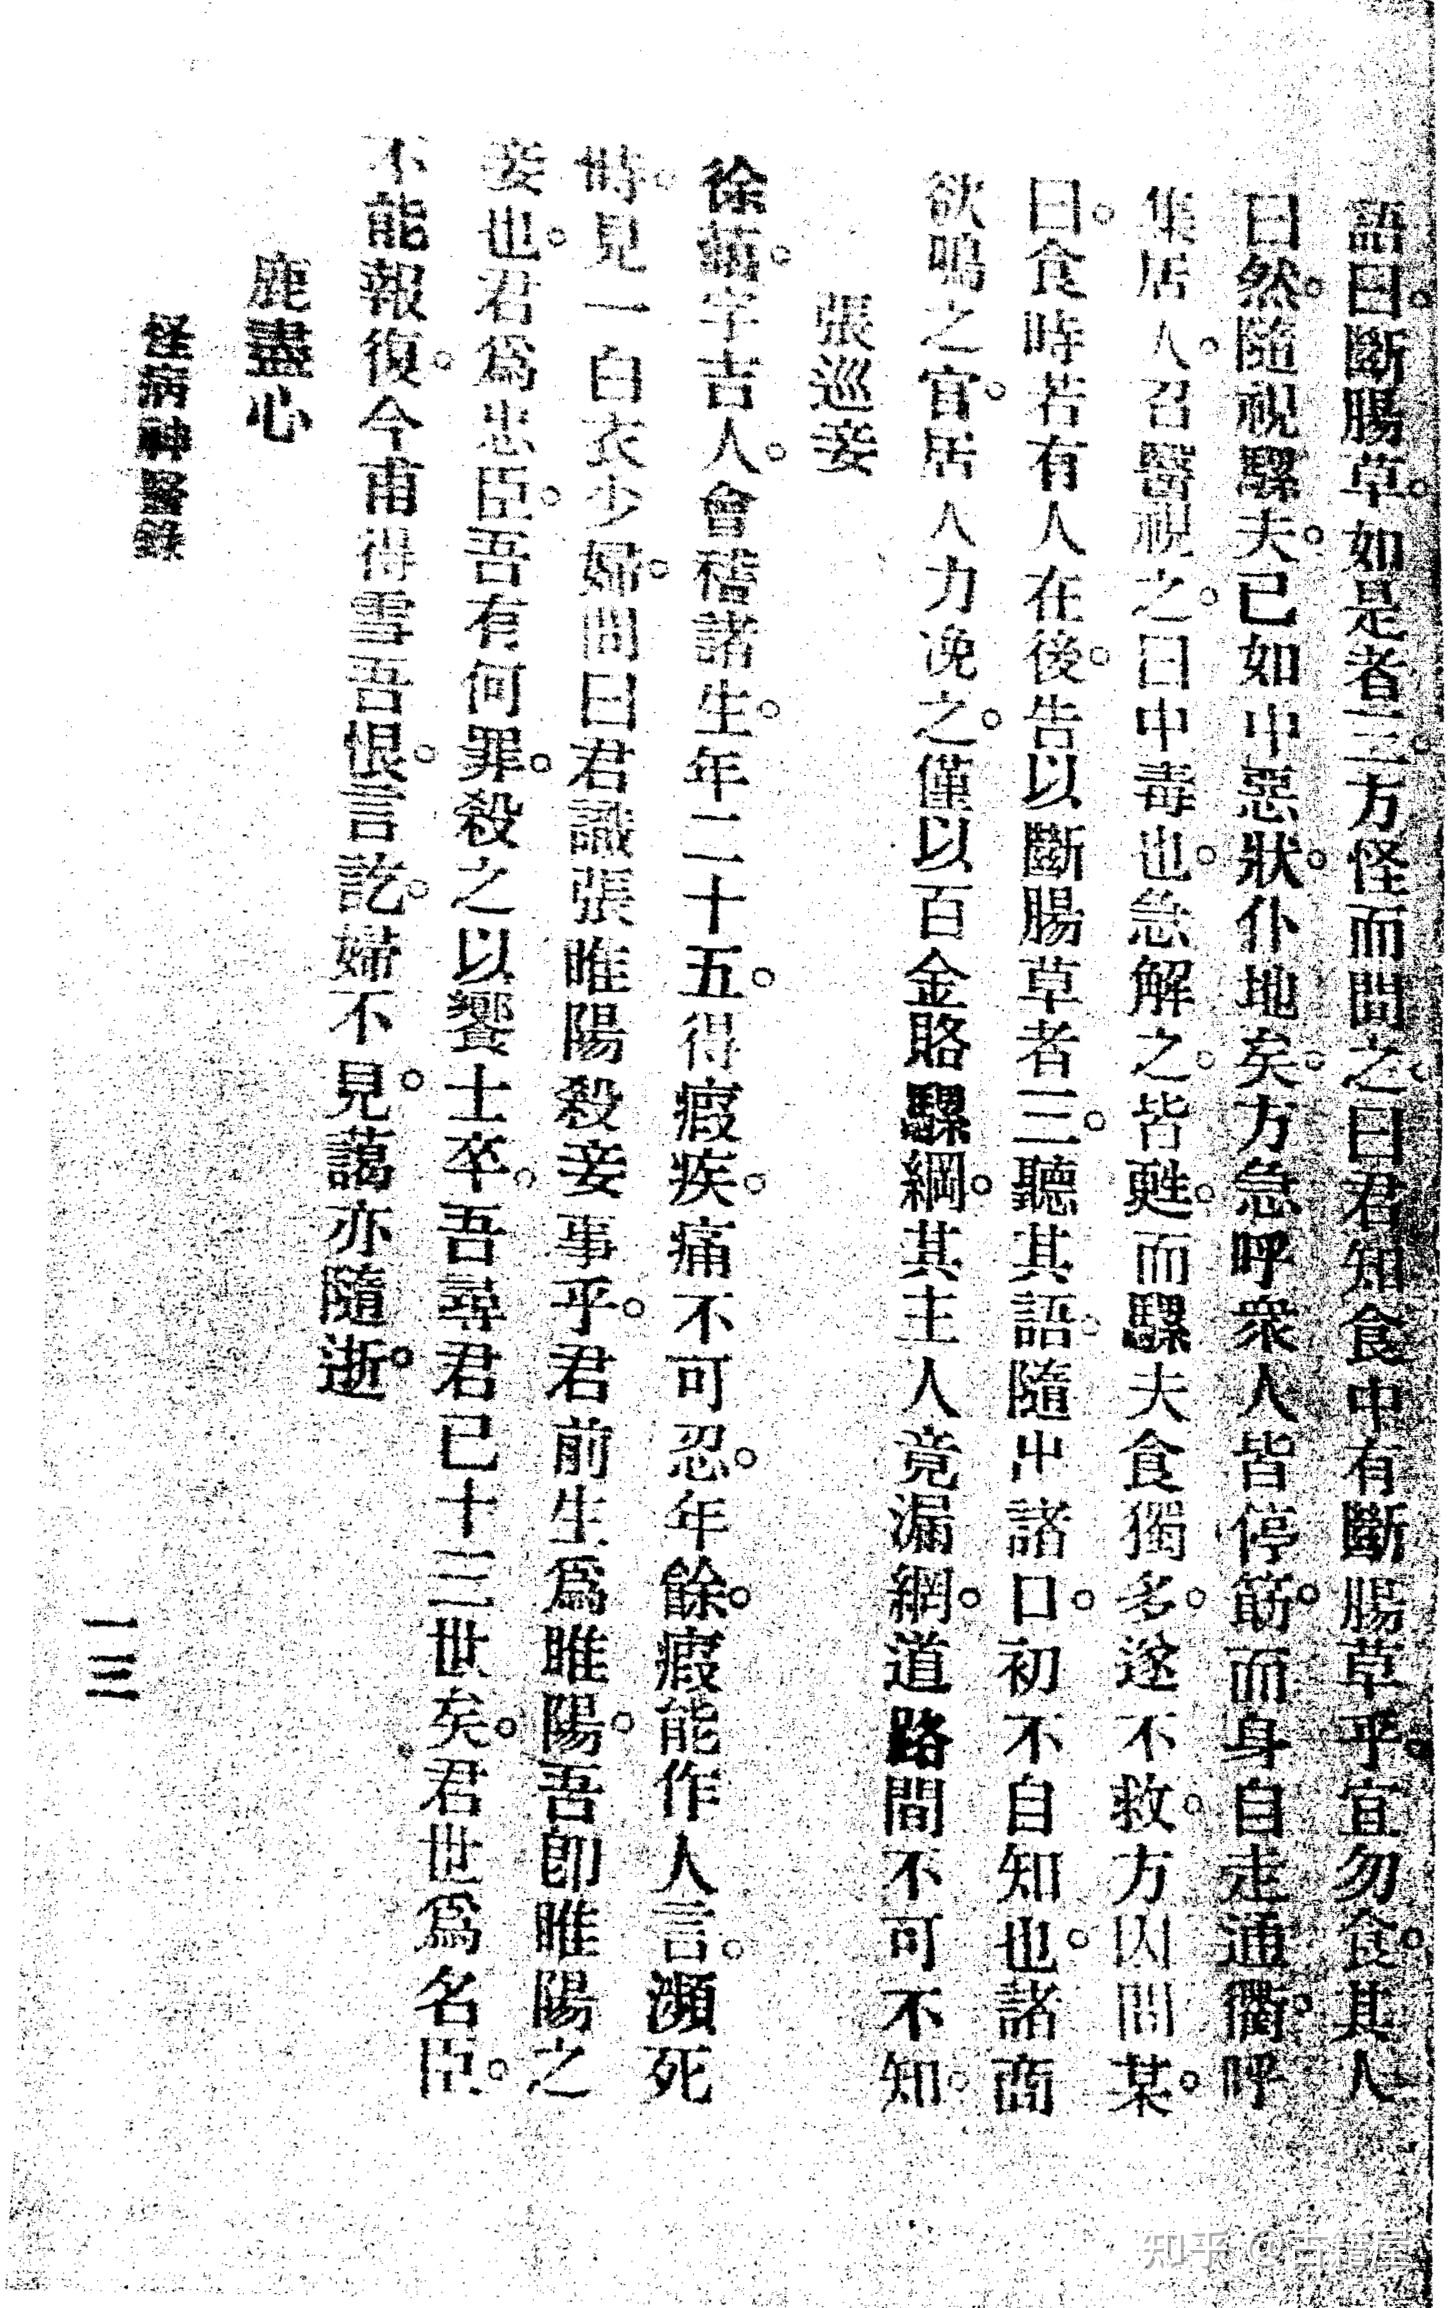 語曰。斷腸草。如是者三。方怪而問之。曰君知食中有斷腸草乎。宜勿食。其人
曰然。隨視騾夫。已如中惡狀。仆地矣。方急呼衆人皆停筯。而身自走通衢。呼
集居人。召醫視之。曰中毒也。急解之。皆甦。而騾夫食獨多。遂不救。方因問某。
曰。食時若有人在後。告以斷腸草者三。聽其語。隨出諸口。初不自知也。諸商
欲鳴之官。居人力凂之。僅以百金賂騾綱。其主人竟漏網。道路間不可不知。
張巡妾
徐藹。字吉人。會稽諸生。年二十五。得瘕疾。痛不可忍。年餘。瘕能作人言。瀕死
時。見一白衣少婦。問曰君識張睢陽殺妾事乎。君前生爲睢陽。吾卽睢陽之
妾也。君爲忠臣。吾有何罪。殺之以饗士卒。吾尋君已十三世矣。君世爲名臣。
不能報復。今甫得雪吾恨。言訖。婦不見。藹亦隨逝。
鹿盡心
怪病神醫錄
一三
知乎 @古籍屋